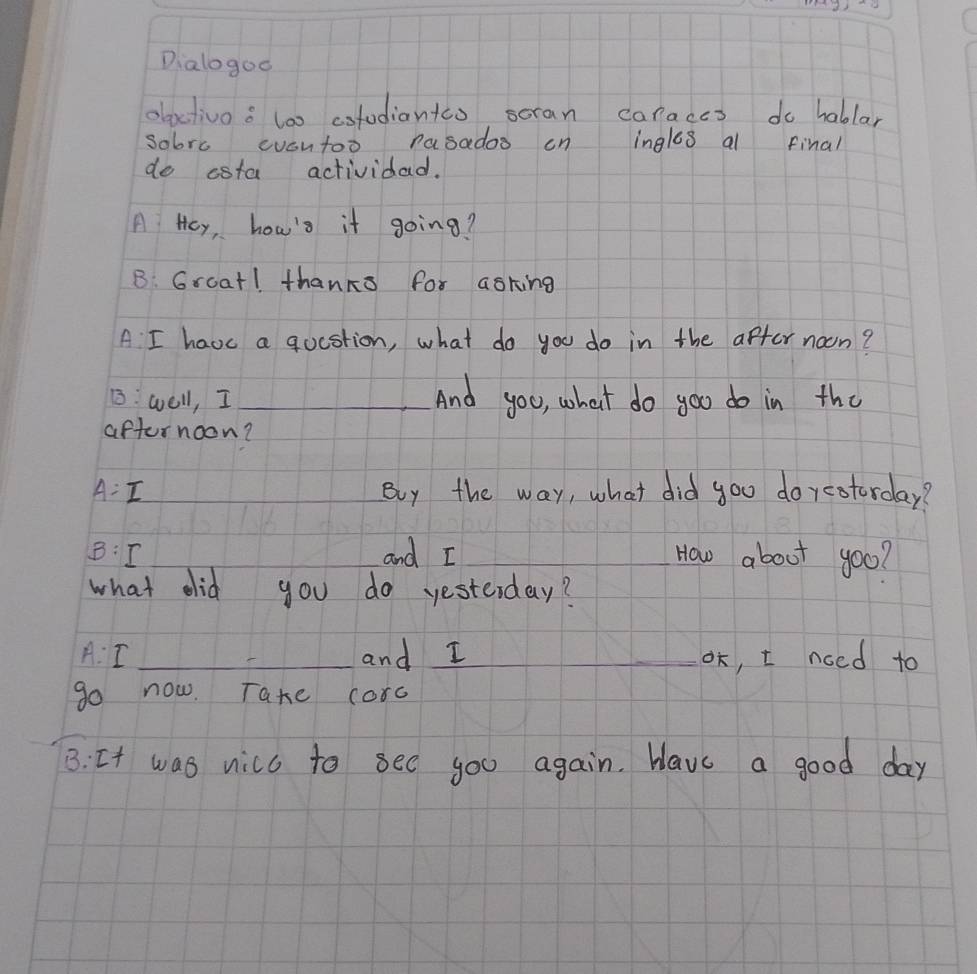 Dialogoo
objectivo: los estudiantes seran capaces de hablar
sobre eventos pasados en ingles al final
de esta actividad.
A: Hey, how's it going?
B: Great! thanks for asking
A: I have a question, what do you do in the afternoon?
B: well, I ________ And you, what do you do in the
afternoon?
A: I ________ Buy the way, what did you do yesterday?
B: I ________ and I ________ How about you?
what did you do yesterday?
A: I ________ and I ________ ok, I need to
go now. Take care
B: It was nice to see you again. Have a good day